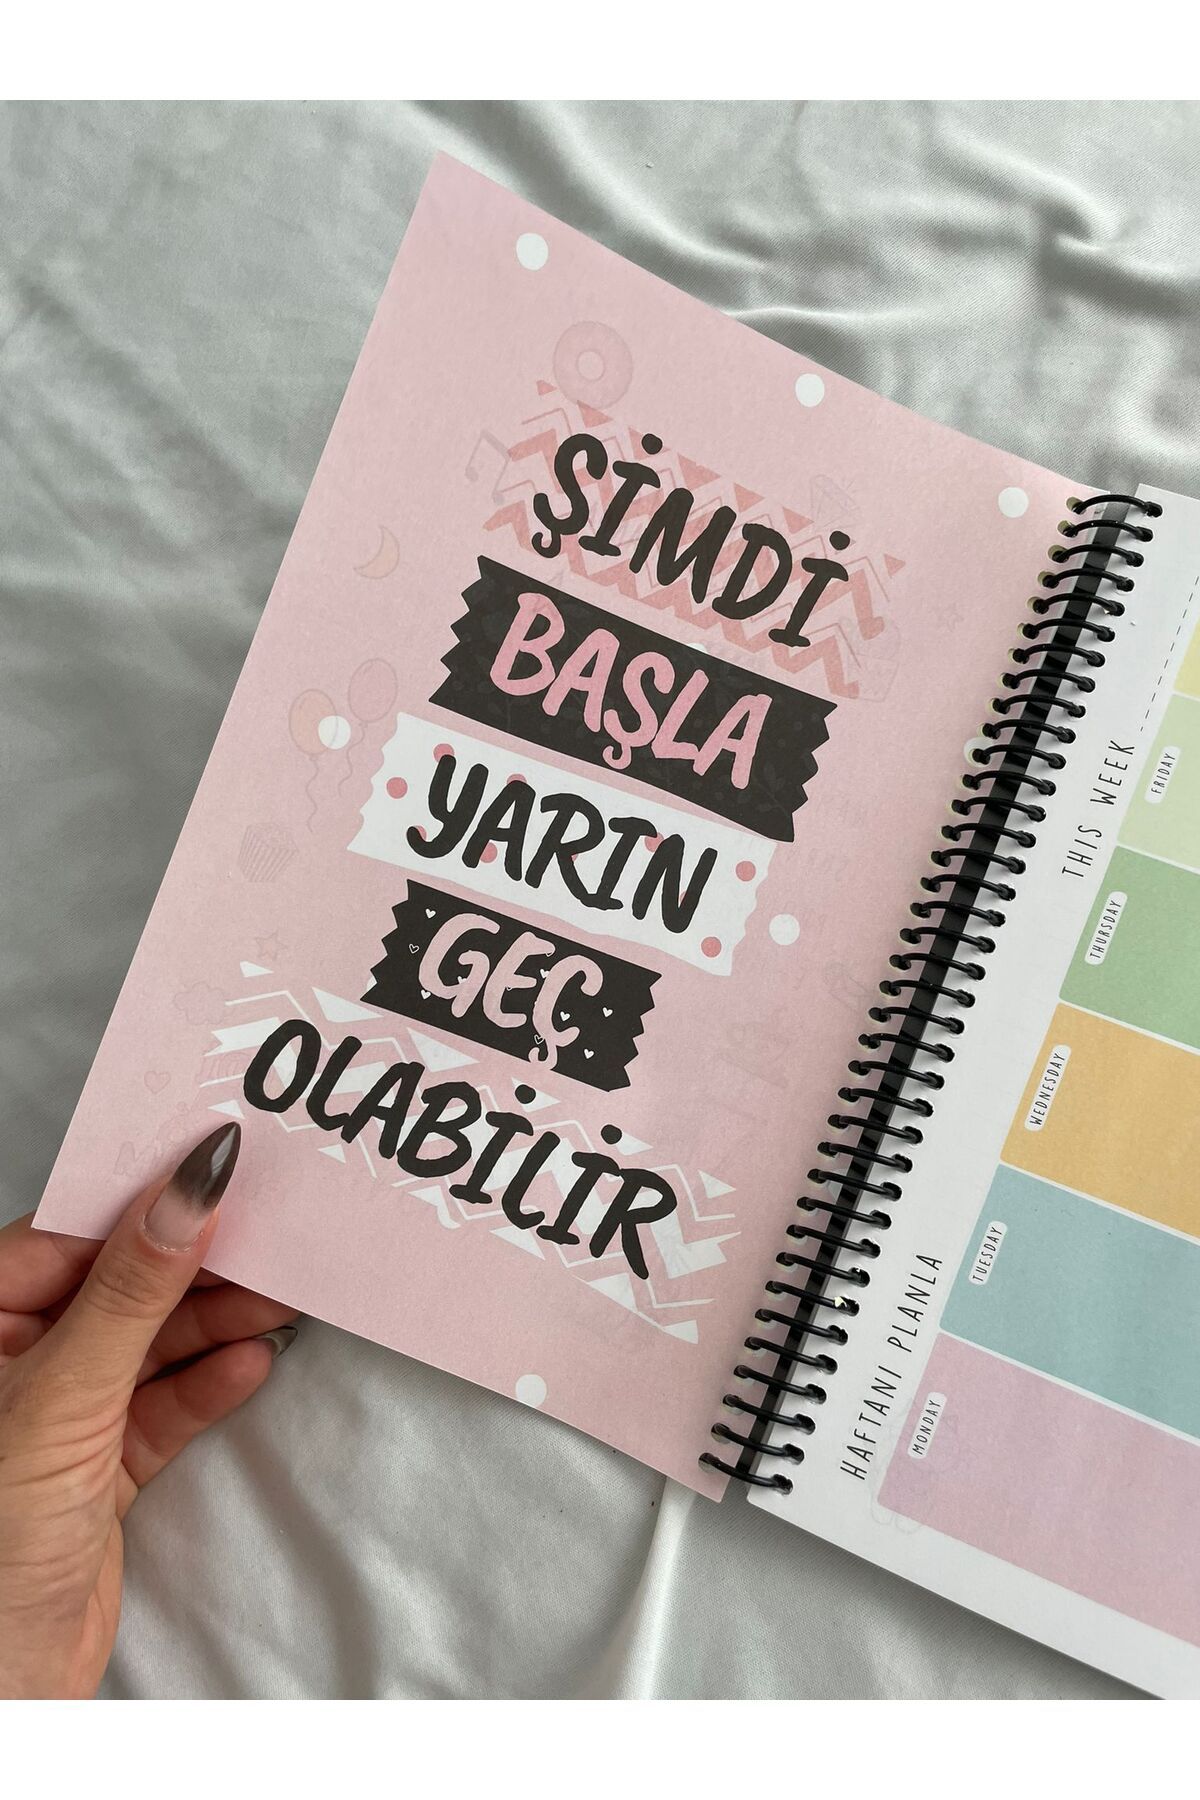 ŞİMDİ
BAŞLA
YARIN
GEÇ
OLABİLİR
HAFTANI PLANLA
THIS WEEK
MONDAY
TUESDAY
WEDNESDAY
THURSDAY
FRIDAY